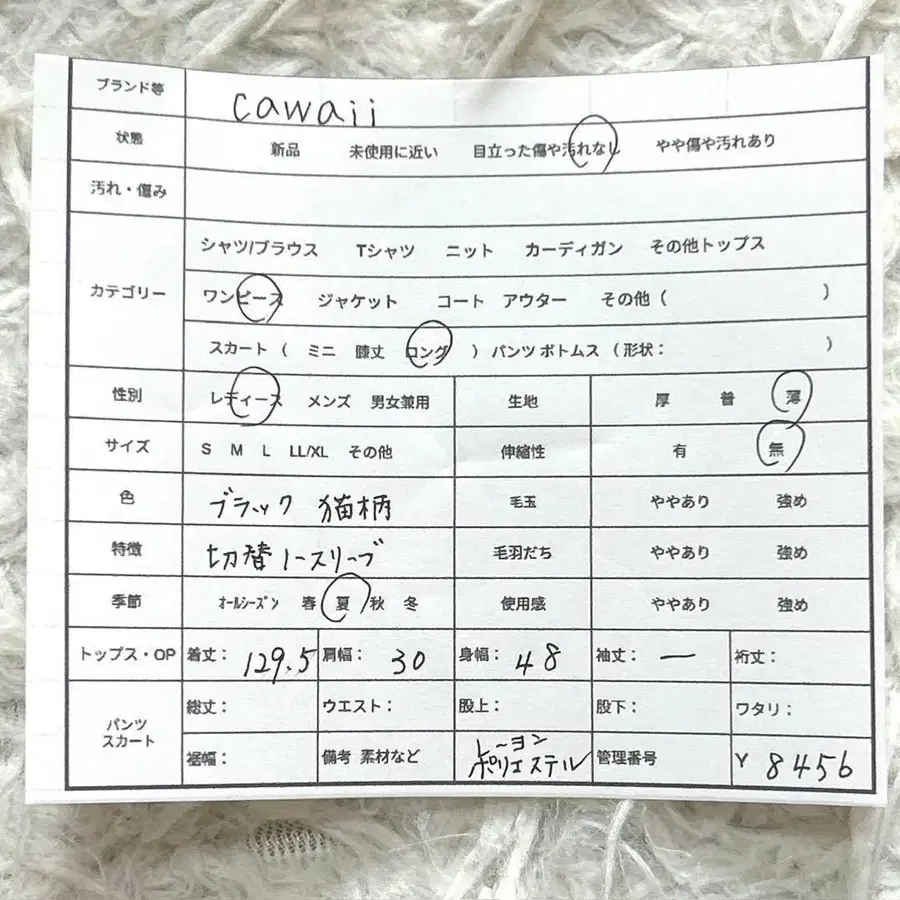 ブランド等 cawaii
状態 新品 未使用に近い 目立った傷や汚れなし やや傷や汚れあり
汚れ・傷み
シャツ/ブラウス Tシャツ ニット カーディガン その他トップス
カテゴリー ワンピース ジャケット コート アウター その他 ( )
スカート ( ミニ 膝丈 ロング ) パンツ ボトムス ( 形状： )
性別 レディース メンズ 男女兼用 生地 厚 普 薄
サイズ S M L LL/XL その他 伸縮性 有 無
色 ブラック 猫柄 毛玉 ややあり 強め
特徴 切替ノースリーブ 毛羽だち ややあり 強め
季節 オールシーズン 春 夏 秋 冬 使用感 ややあり 強め
トップス・OP 着丈： 129.5 肩幅： 30 身幅： 48 袖丈： ー 裄丈：
パンツ スカート 総丈： ウエスト： 股上： 股下： ワタリ：
裾幅： 備考 素材など レーヨン ポリエステル 管理番号 Y 8456